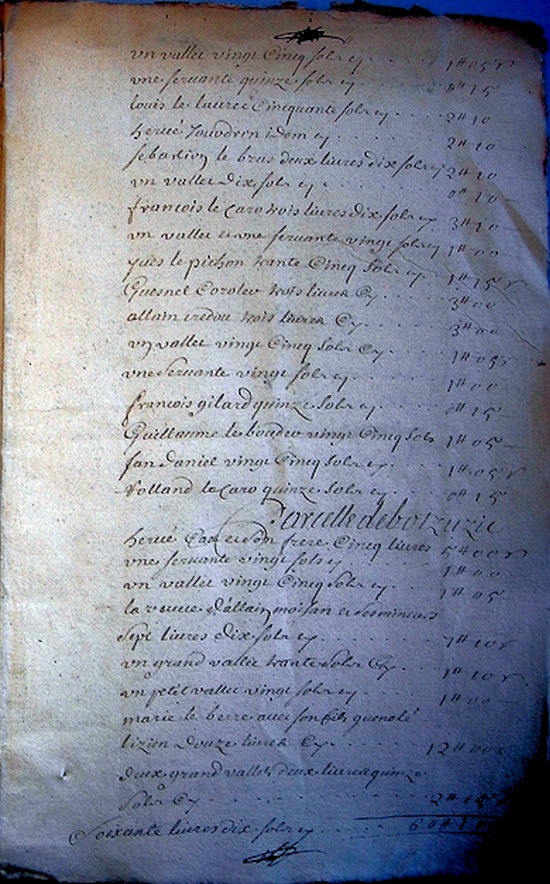 un vallet vingt Cinq sols cy . . . 1# 05 s
une servante quinze sols cy . . . 0# 15
louis le livrec Cincquante sols cy . . 2# 10
hervé Jouvdren idem cy . . . 2# 10
sebastien le bras deux livres dix sols cy 2# 10
un vallet dix sols cy . . . 0# 10
francois le Caro trois livres dix sols cy 3# 10
un vallet et une servante vingt sols cy 1# 00
yves le pichon trante Cinq sols cy . . 1# 15 s
Guesnel Corolev trois livres Cy . . . 3# 00
allain credou trois livres Cy . . . 3# 00
un vallet vingt Cinq sols Cy . . . 1# 05 s
une servante vingt sols cy . . . 1# 00
francois gilard quinze sols cy . . . 0# 15
Guillaume le boudev vingt Cinq sols 1# 05
Jan Daniel vingt Cinq sols cy . . . 1# 05 s
Rolland le Caro quinze sols cy . . . 0# 15
Parcelle de botzuzic
hervé Can et son frere Cinq livres 5# 00 s
une servante vingt sols cy . . . 1# 00
un vallet vingt Cinq sols cy . . . 1# 05
la veuve d'allain moisan et ses mineurs
Sept livres dix sols cy . . . 7# 10 s
un grand vallet trante sols Cy . . 1# 10 s
un petit vallet vingt sols cy . . . 1# 00
marie le berre avec son fils guenolé
lizien Douze livres Cy . . . 12# 00 s
deux grand vallets deux livres quinze
sols Cy . . . 2# 15 s
Soixante livres dix sols cy . . . 60# 10